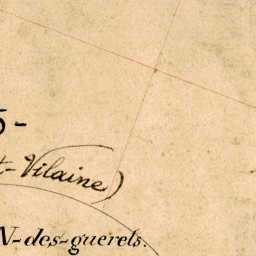 -Vilaine)
N-des-guerets.